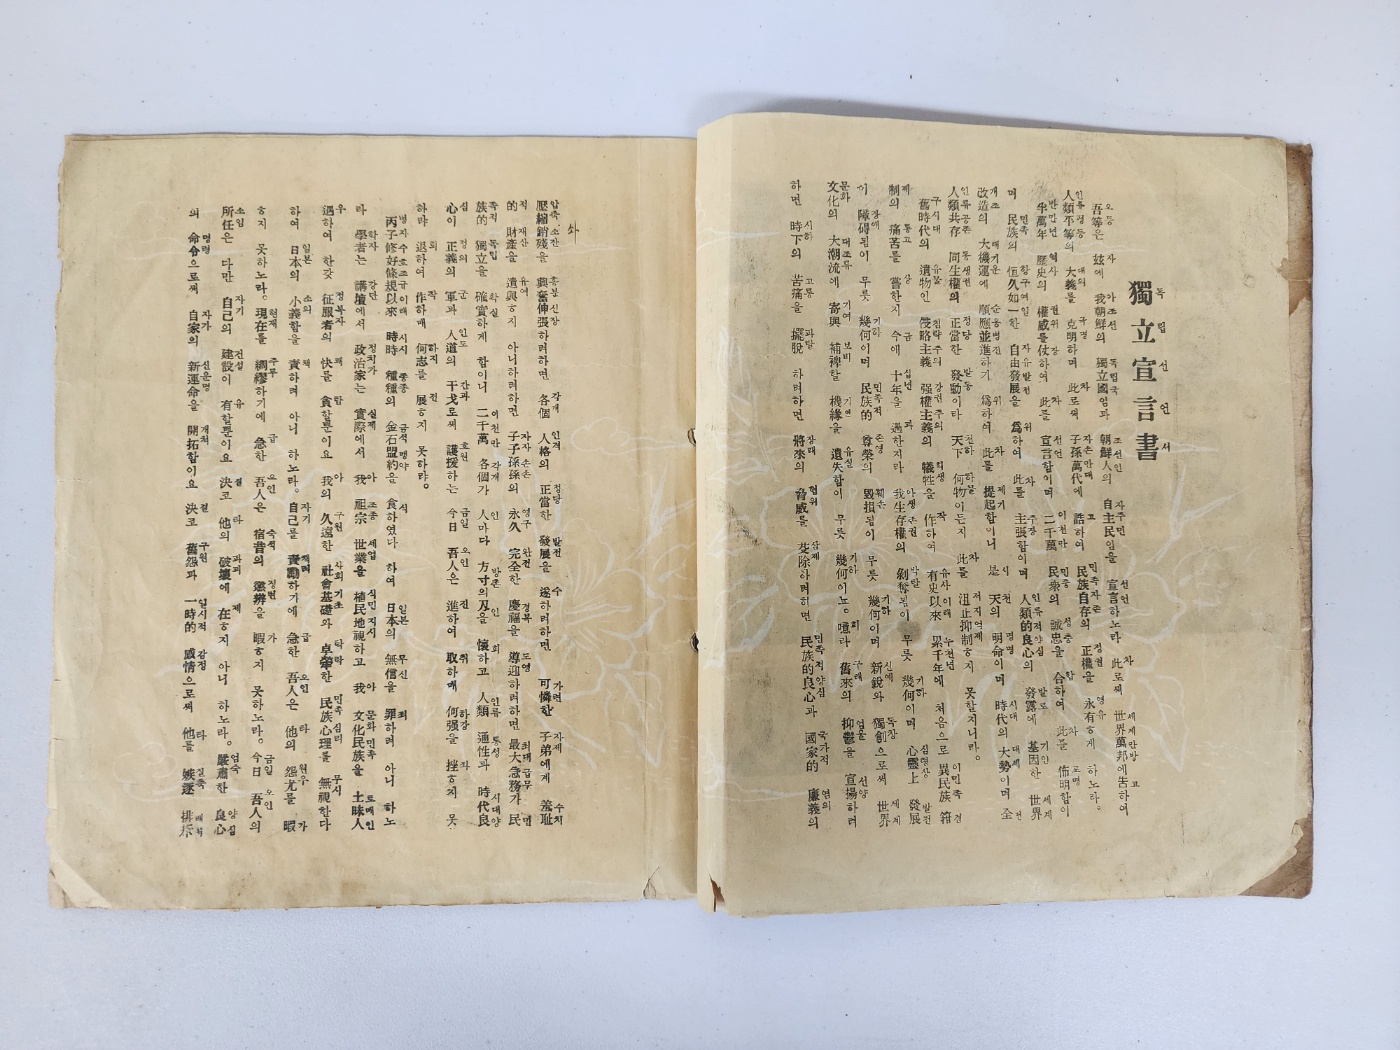 獨立宣言書
독립선언서
吾等은 玆에 我朝鮮의 獨立國임과 朝鮮人의 自主民임을 宣言하노라 此로써 世界萬邦에 告하여
人類平等의 大義를 克明하며 此로써 子孫萬代에 誥하여 民族自存의 正權을 永有ㅎ게 하노라。
半萬年 歷史의 權威를 仗하여 此를 宣言함이며 二千萬 民衆의 誠忠을 合하여 此를 佈明함이
며 民族의 恒久如一한 自由發展을 爲하여 此를 主張함이며 人類的良心의 發露에 基因한 世界
改造의 大機運에 順應並進하기 爲하여 此를 提起함이니 是 天의 明命이며 時代의 大勢이며 全
人類共存 同生權의 正當한 發動이라 天下 何物이든지 此를 沮止抑制ㅎ지 못할지니라。
舊時代의 遺物인 侵略主義 强權主義의 犧牲을 作하여 有史以來 累千年에 처음으로 異民族 箝
制의 痛苦를 嘗한지 今에 十年을 過한지라 我生存權의 剝奪됨이 무릇 幾何이며 心靈上 發展
이 障碍됨이 무릇 幾何이며 民族的 尊榮의 毀損됨이 무릇 幾何이며 新銳와 獨創으로써 世界
文化의 大潮流에 寄與 補裨할 機緣을 遺失함이 무릇 幾何이뇨。噫라 舊來의 抑鬱을 宣揚하려
하면 時下의 苦痛을 擺脫 하려하면 將來의 脅威를 芟除하려하면 民族的良心과 國家的 廉義의
壓縮銷殘을 興奮伸張하려하면 各個 人格의 正當한 發展을 遂하려하면 可憐한 子弟에게 羞恥
的 財產을 遺與ㅎ지 아니하려하면 子子孫孫의 永久 完全한 慶福을 導迎하려하면 最大急務가 民
族的 獨立을 確實하게 함이니 二千萬 各個가 人마다 方寸의 刃을 懷하고 人類 通性과 時代良
心이 正義의 軍과 人道의 干戈로써 護援하는 今日 吾人은 進하여 取하매 何强을 挫ㅎ지 못
하랴 退하여 作하매 何志를 展ㅎ지 못하랴。
丙子修好條規以來 時時 種種의 金石盟約을 食하였다 하여 日本의 無信을 罪하려 아니 하노
라 學者는 講壇에서 政治家는 實際에서 我 祖宗 世業을 植民地視하고 我 文化民族을 土昧人
遇하여 한갓 征服者의 快를 貪할뿐이요 我의 久遠한 社會基礎와 卓犖한 民族心理를 無視한다
하여 日本의 小義함을 責하려 아니 하노라。自己를 責勵하기에 急한 吾人은 他의 怨尤를 暇
ㅎ지 못하노라。現在를 綢繆하기에 急한 吾人은 宿昔의 懲辨을 暇ㅎ지 못하노라。今日 吾人의
所任은 다만 自己의 建設이 有할뿐이요 決코 他의 破壞에 在ㅎ지 아니 하노라。嚴肅한 良心
의 命令으로써 自家의 新運命을 開拓함이요 決코 舊怨과 一時的 感情으로써 他를 嫉逐 排斥